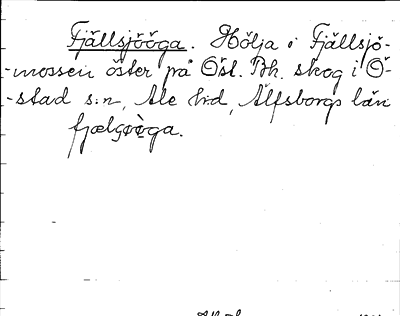 Fjällsjööga. Hölja i Fjällsjö-
-mossen öster på Östl. Bh. skog i Ö-
-stad s:n, Ale h:d, Älfsborgs län
fjælʂøòga.